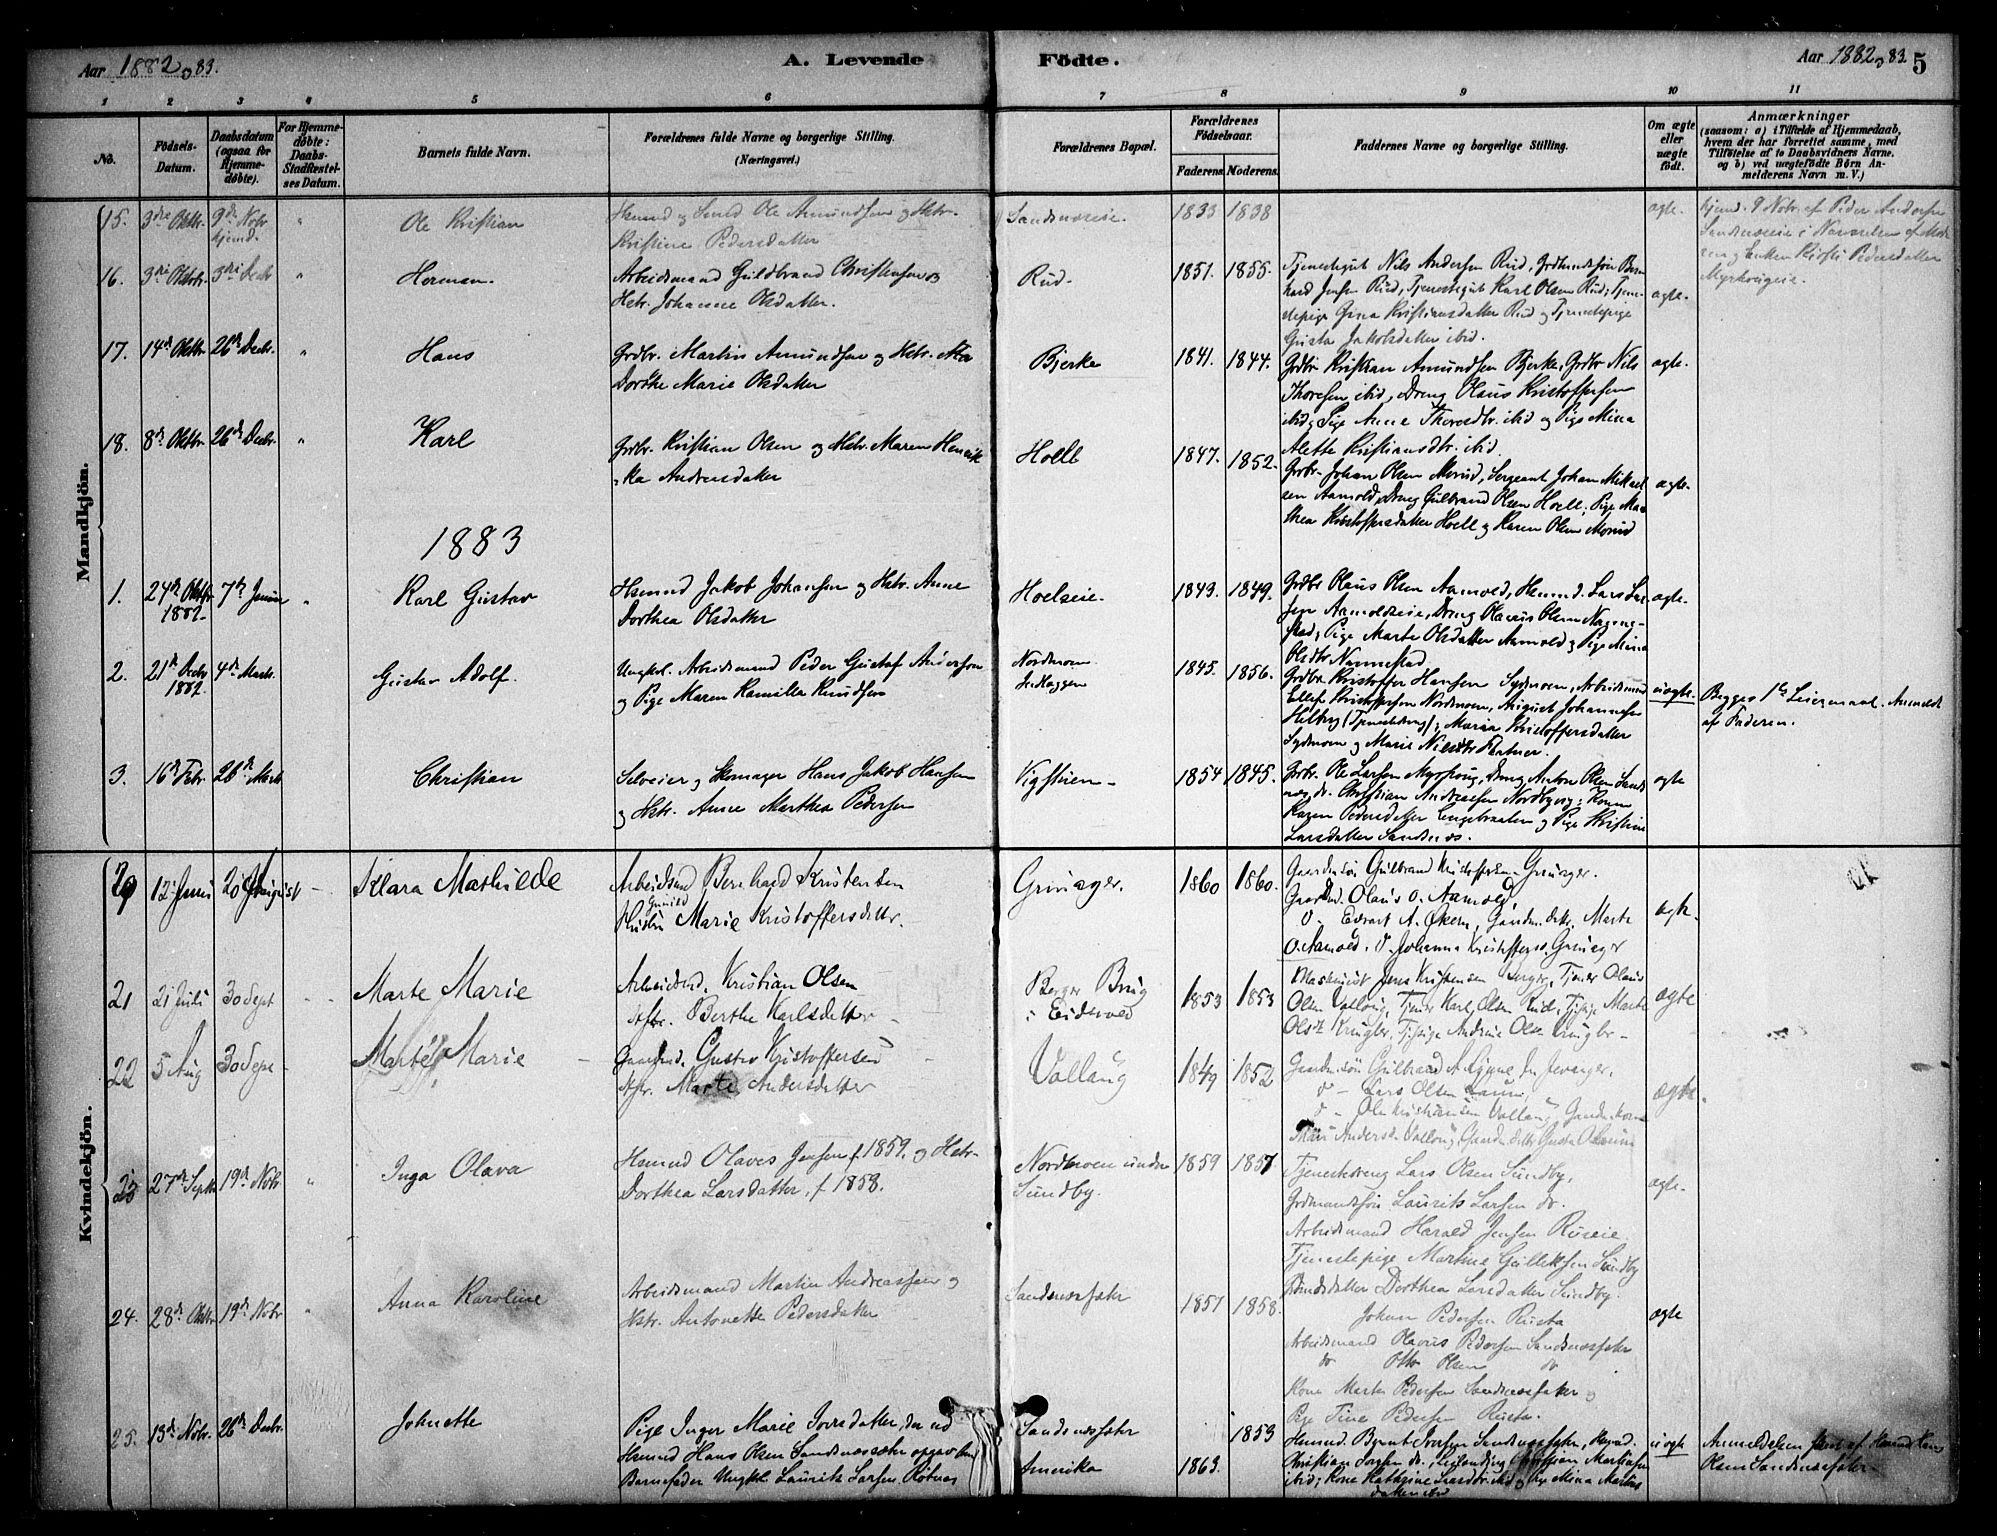 Aar 1882 og 83.
A. Levende Födte.
Aar 1882 og 83. 5
1 2 3 4 5 6 7 8 9 10 11
No.
Födsels-Datum.
Daabsdatum (ogsaa for Hjemmedøbte).
For Hjemmedøbte: Daabs-Stadfæstelses Datum.
Barnets fulde Navn.
Forældrenes fulde Navne og borgerlige Stilling. (Næringsvei.)
Forældrenes Bopæl.
Forældrenes Födselsaar.
Faderens. Moderens.
Faddernes Navne og borgerlige Stilling.
Om ægte eller uægte födt.
Anmærkninger
(saasom: a) i Tilfælde af Hjemmedaab, hvem der har forrettet samme, med Tilföielse af to Daabsvidners Navne, og b) ved uægtefödte Börn Anmelderens Navn m. V.)
Mandkjön.
15. 3die Oktbr. 9de Novbr. hjemd. " Ole Kristian
Husmd og Smed Ole Amundsen og Hstr.
Kristine Pedersdatter
Sandsnæseie. 1833 1838 ægte.
hjemd. 9 Nobr. af Peder Andersen
Sandsnæseie i Nærværelsen af Mode
ren og Enken Kirsti Pedersdatter
Myrhougeie.
16. 3die Oktobr. 3die Decbr. " Herman.
Arbeidsmand Guldbrand Christensen og
Hstr. Johanne Olsdatter.
Rud. 1851. 1855.
Tjenestegut Nils Andersen Rud, Grdmandssøn Bern
hard Jensen Rud, Tjenestegut Karl Olsen Rud; Tjene-
stepige Gina Kristiansdatter Rud og Tjenestepige
Gusta Jakobsdatter ibid.
ægte.
17. 14de Oktbr. 26de Decbr. " Hans
Grdbr. Martin Amundsen og Hstr.
Dorthe Marie Olsdatter
Bjerke 1841. 1844.
Grdbr Kristian Amundsen Bjerke, Grdbr Nils
Thoresen ibid, Dreng Olaus Kristoffersen
ibid; Pige Anne Thoresdtr. ibid og Pige Mina
Alette Kristiansdtr. ibid.
ægte.
18. 8de Oktbr 26de Decbr. " Karl
Grdbr. Kristian Olsen og Hstr. Maren Henrik
ka Andersdatter
Hoell 1847. 1852.
Grbr. Johan Olsen Morud, Sergeant Johan Mikael
sen Aamold, Dreng Gulbrand Olsen Hoell; Pige Mar
thea Kristoffersdatter Hoell og Karen Olsen Morud
ægte.
1883
1. 24de Oktbr 1882. 7de Januar " Karl Gustav
Husmd Jakob Johansen og Hstr. Anne
Dorthea Olsdatter
Hoelseie. 1843. 1849.
Grdbr Olaus Olsen Aamold, Husmd. Lars Lar
sen Aamoldseie, Dreng Olavus Olsen Nanne-
stad; Pige Marte Olsdatter Aamold og Pige Mina
Olsdtr Nannestad
ægte.
2. 21de Decbr 1882. 4de Marts. Gustav Adolf.
Ungkl. Arbeidsmand Peder Gustaf Andersson
og Pige Maren Kamilla Knudsen
Nordmoen
1845. 1856.
Grdbr Kristoffer Hansen Sydmoen, Arbeidsmand
Ellef Kristoffersen Nordmoen, August Johannesen
(Tjenestedreng); Maria Kristoffersdatter
Sydmoen og Marie Nilsdtr
uægte.
Begges 1ste Leiermaal. Anmeldt
af Faderen.
3. 16de Febr. 26de Marts Christian
Selveier og Skomager Hans Jakob Hansen
og Hstr. Anne Marthea Pedersen
Vigstien 1854 1845.
Grbr. Ole Larsen Myrhoug, Dreng Anton Olsen Sands
næs, do. Christian Andreassen Nordbyeie; Kone
Karen Pedersdatter Engebraaten og Pige Kristine
Larsdatter Sandsnæs.
ægte
Kvindekjön.
20 12 Juni 20 August - Klara Mathilde
Arbeidsmd Bernhard Kristensen
Gunild
Hustru Marie Kristoffersdtter.
Gruager. 1860 1860.
Gaardm.søn Gulbrand Kristoffersen Gruager.
Gaardmd. Olaus O. Aamold,
D. Edvart A. Økern, Gaardm.datter Marte
O. Aamold. D. Johanna Kristoffersd. Gruager
ægte.
21 21 Juli 30 Sept - Marte Marie
Arbeidsmd. Kristian Olsen
Hstr. Berthe Karlsdatter
Berger Brug
i Eidsvold
1853 1853
Maskinist Jens Kristensen Berger, Tjener Olaus
Olsen Vallaug, Tjener Karl Olsen Rud, Tj.pige Marte
Olsdtr Krugler, Tj.pige Andrine Olsen Krugler
ægte
22 5 Aug 30 Sept - Marte Marie
Gaardmd. Gustav Kristoffersen
Hstr. Marte Andersdatter
Vallaug 1849 1852
Lars Olsen
Ole Kristiansen Vallaug,
ægte.
23 27de Septbr 19de Nobr. " Inga Olava
Husmd Olaves Jensen f. 1859. og Hstr.
Dorthea Larsdatter, f. 1858.
Nordmoen under
Sundby.
1859 1857
Tjenestedreng Lars Olsen Sundby,
Grdmandssøn Laurits Larsen do.
Arbeidsmand Harald Jensen Ruseie
Tjenestepige Martine Gulliksen Sundby
Grdmdsdatter Dorthea Larsdatter Sundby.
ægte.
24. 28de Oktbr 19de Nobr " Anna Karoline
Arbeidsmand Martin Andreassen og
Hstr. Antonette Pedersdatter
Sandsnæssæter 1857 1858.
Johan Pedersen Rusta
Arbeidsmand Olavus Pedersen Sandsnæssæter
do Otto Olsen do
Kone Marte Pedersen Sandsnæssæter og
Pige Tine Pedersen Rusta.
ægte
25. 13de Nobr. 26de Decbr. Johnette
Pige Inger Marie Iversdatter, der ved
Husmd Hans Olsen Sandsnæssæter opgav som
Barnefader Ungkl. Laurits Larsen Røtnæs
Sandsnæssæter
Amerika
1863. 1853
Husmd. Bernt Iversen Sandsnæssæter, Husmd.
Christian do,
ibid; Kone Kathrine ibid og Pige Mina Martins
datter ibid
uægte
Anmeldelsen af Husmd Hans
Olsen Sandsnæssæter.